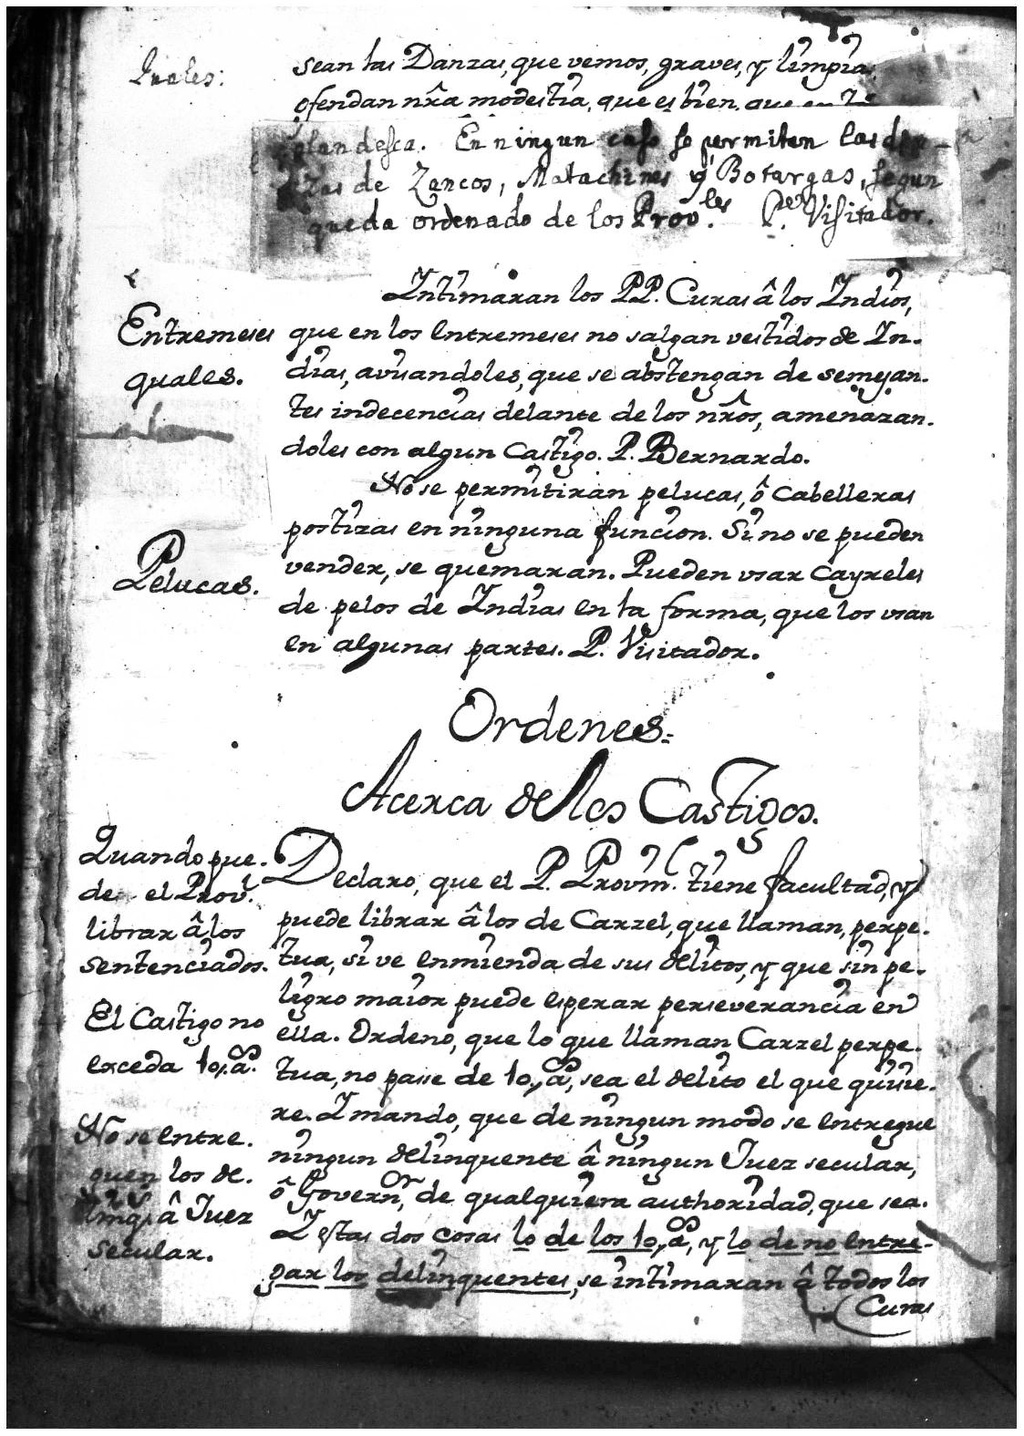 Quales:
sean las Danzas, que vemos, graves, y limpias
ofendan nr̃a modestia, que es bien, que en
landesca. En ningun caso se permiten las dan-
zas de Zancos, Matachines y Botargas, segun
queda ordenado de los Prov.les P.e Visitador.
Entremeses
quales.
Intimaran los PP. Curas â los Indios,
que en los entremeses no salgan vestidos de In-
dias, avisandoles, que se abstengan de semejan-
tes indecencias delante de los nr̃os, amenazan-
doles con algun castigo. P. Bernardo.
Pelucas.
No se permitiran pelucas, ô cabelleras
postizas en ninguna funcion. Si no se pueden
vender, se quemaran. Pueden usar cayreles
de pelos de Indias en la forma, que los usan
en algunas partes. P. Visitador.
Ordenes
Acerca de los Castigos.
Quando pue-
de el Prov.l
librar â los
sentenciados.
El Castigo no
exceda 10. a.s
No se entre-
guen los de-
linq.s â Juez
secular.
Declaro, que el P. Provin.l tiene facultad, y
puede librar â los de Carzel, que llaman, perpe-
tua, si ve enmienda de sus delitos, y que sin pe-
ligro maior puede esperar perseverancia en
ella. Ordeno, que lo que llaman Carzel perpe-
tua, no passe de 10, a.s, sea el delito el que quisie-
re. I mando, que de ningun modo se entregue
ningun delinquente â ningun Juez secular,
ô Govern.or, de qualquiera authoridad, que sea.
I estas dos cosas lo de los 10, a.s, y lo de no entre-
gar los delinquentes, se intimaran â todos los
Curas